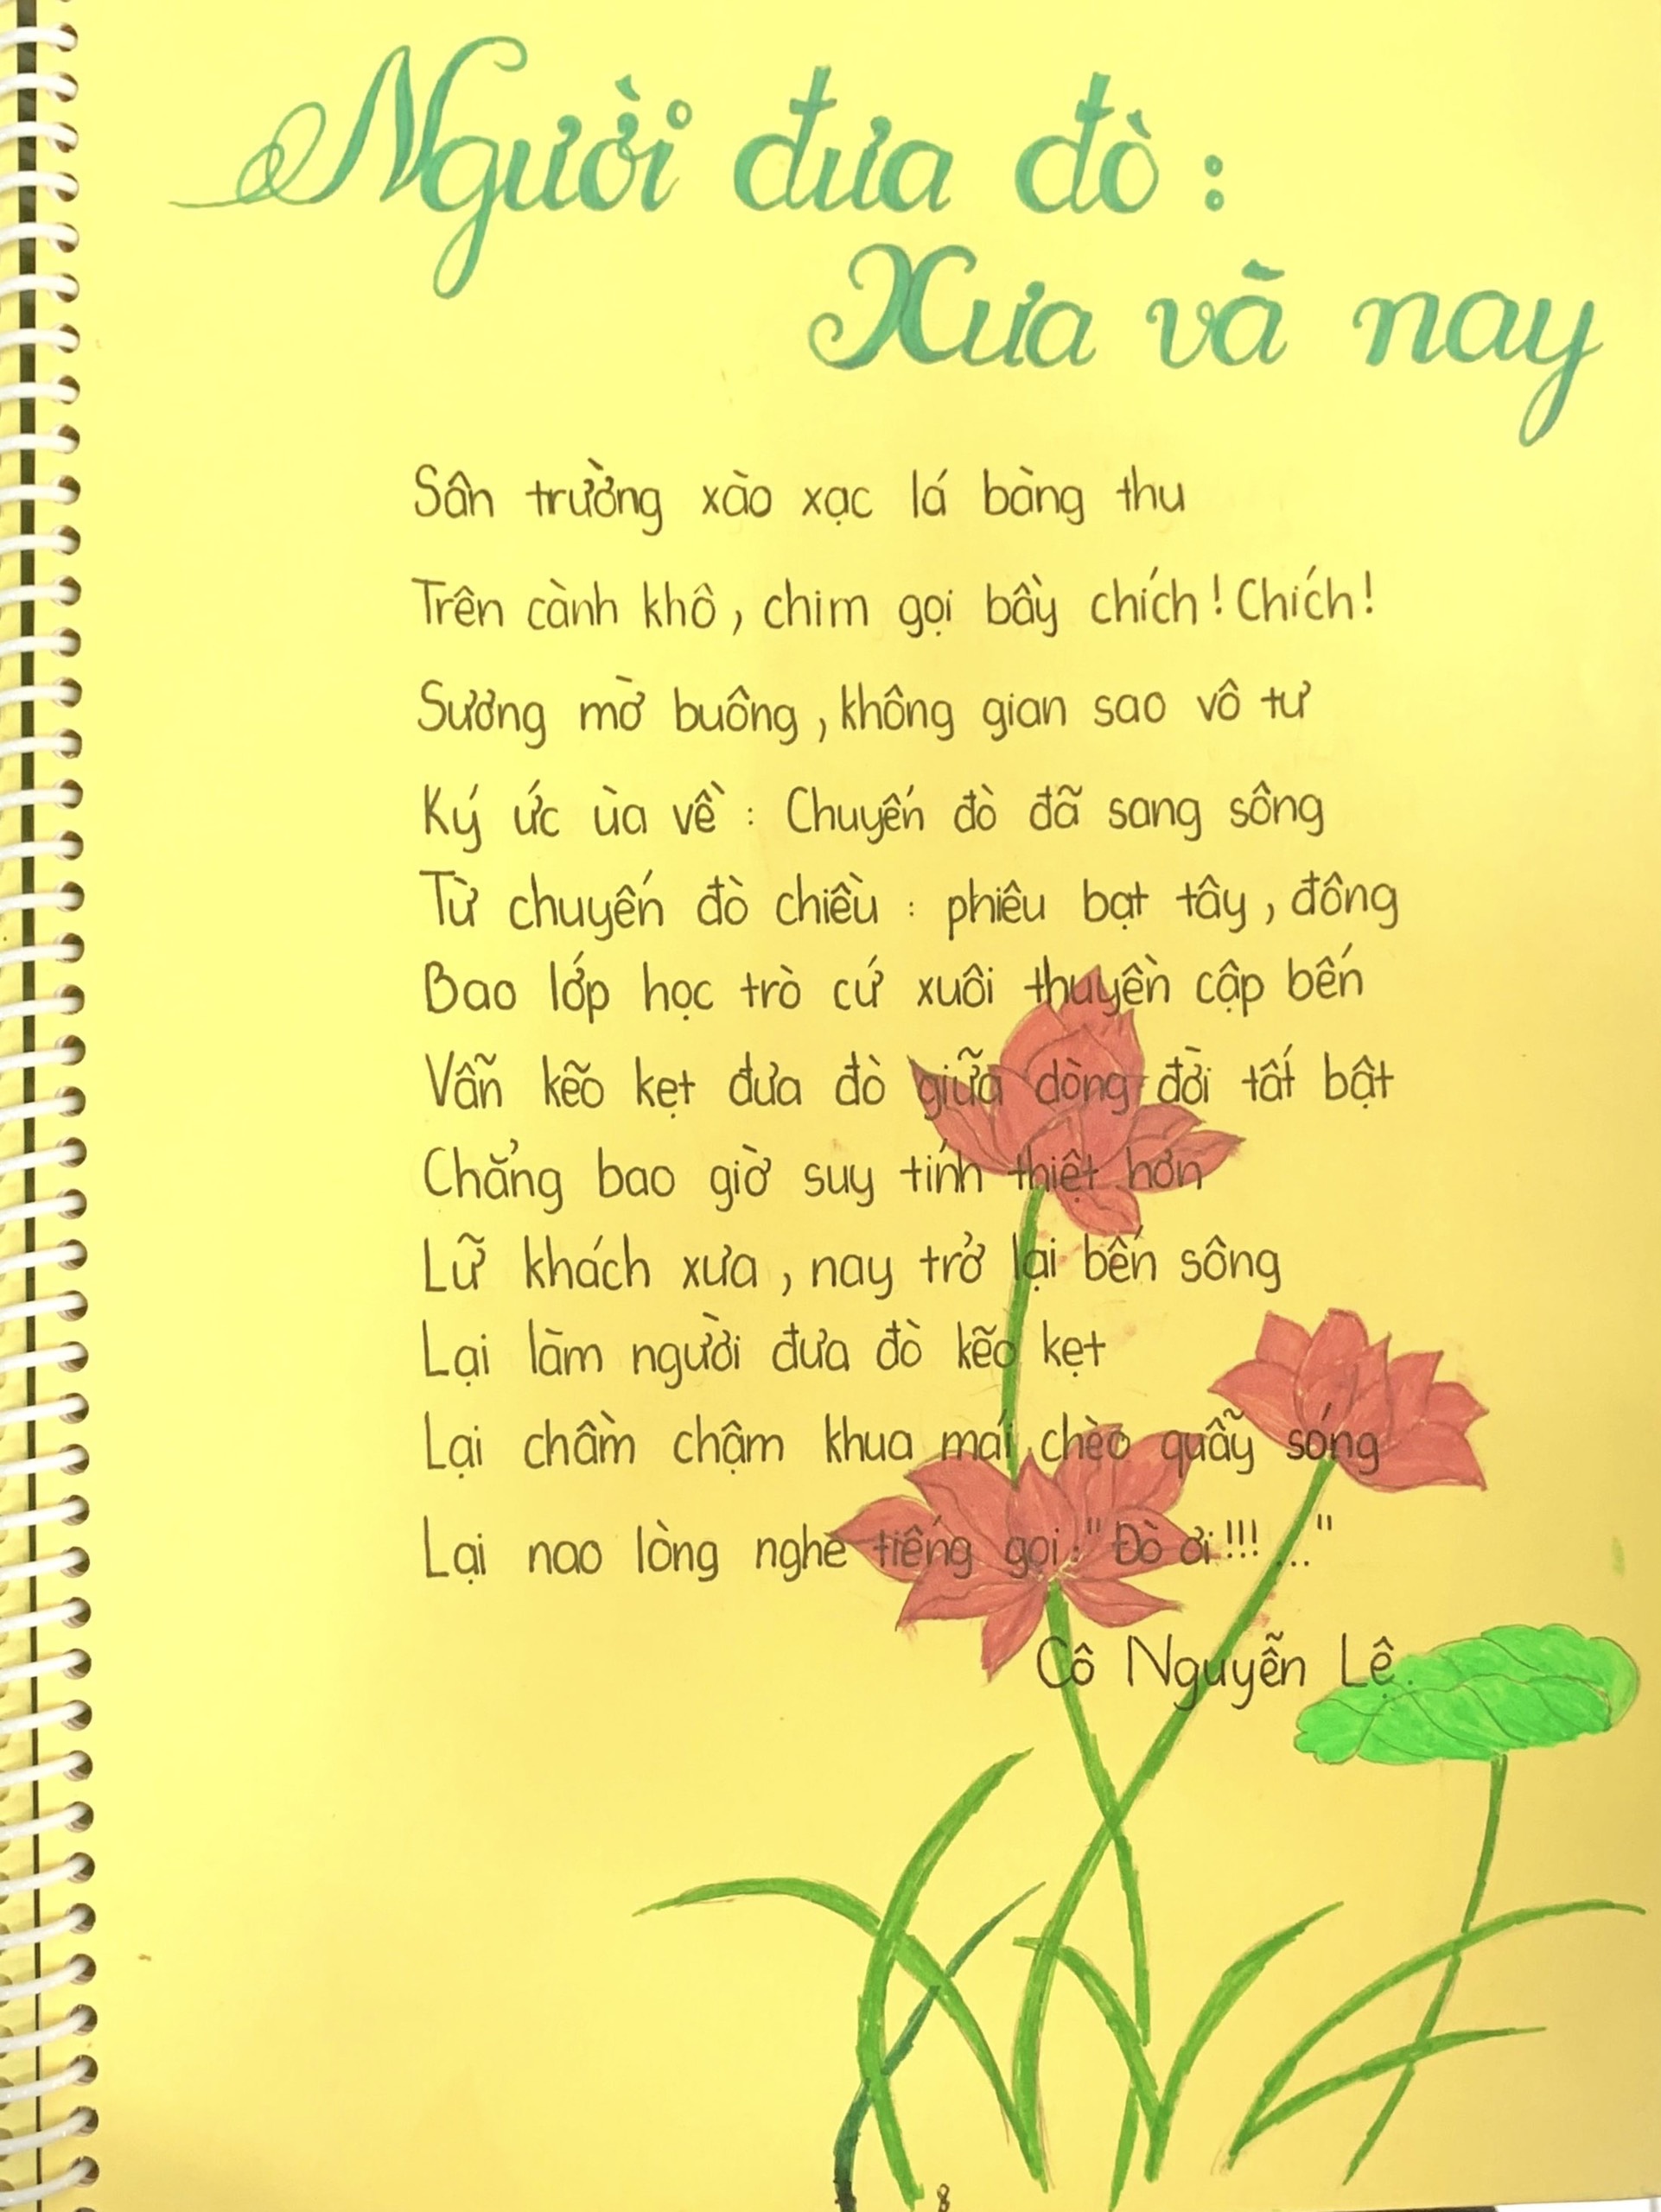 Người đưa đò :
Xưa và nay
Sân trường xào xạc lá bàng thu
Trên cành khô, chim gọi bầy chích! Chích!
Sương mờ buông, không gian sao vô tư
Ký ức ùa về : Chuyến đò đã sang sông
Từ chuyến đò chiều : phiêu bạt tây, đông
Bao lớp học trò cứ xuôi thuyền cập bến
Vẫn kẽo kẹt đưa đò giữa dòng đời tất bật
Chẳng bao giờ suy tính thiệt hơn
Lữ khách xưa, nay trở lại bến sông
Lại làm người đưa đò kẽo kẹt
Lại chầm chậm khua mái chèo quẫy sóng
Lại nao lòng nghe tiếng gọi: "Đò ơi!!! ..."
Cô Nguyễn Lệ.
8